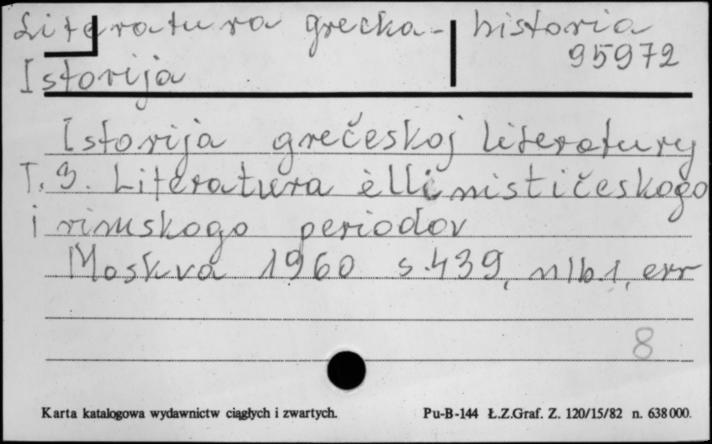 Literatura grecka - historia
95972
Istorija
Istorija grečeskoj literatury
T. 3. Literatura èllinističeskogo
i rimskogo periodov
Moskva 1960 s. 439, nlb. 1, err
8
Karta katalogowa wydawnictw ciągłych i zwartych. Pu-B-144 Ł.Z.Graf. Z. 120/15/82 n. 638000.